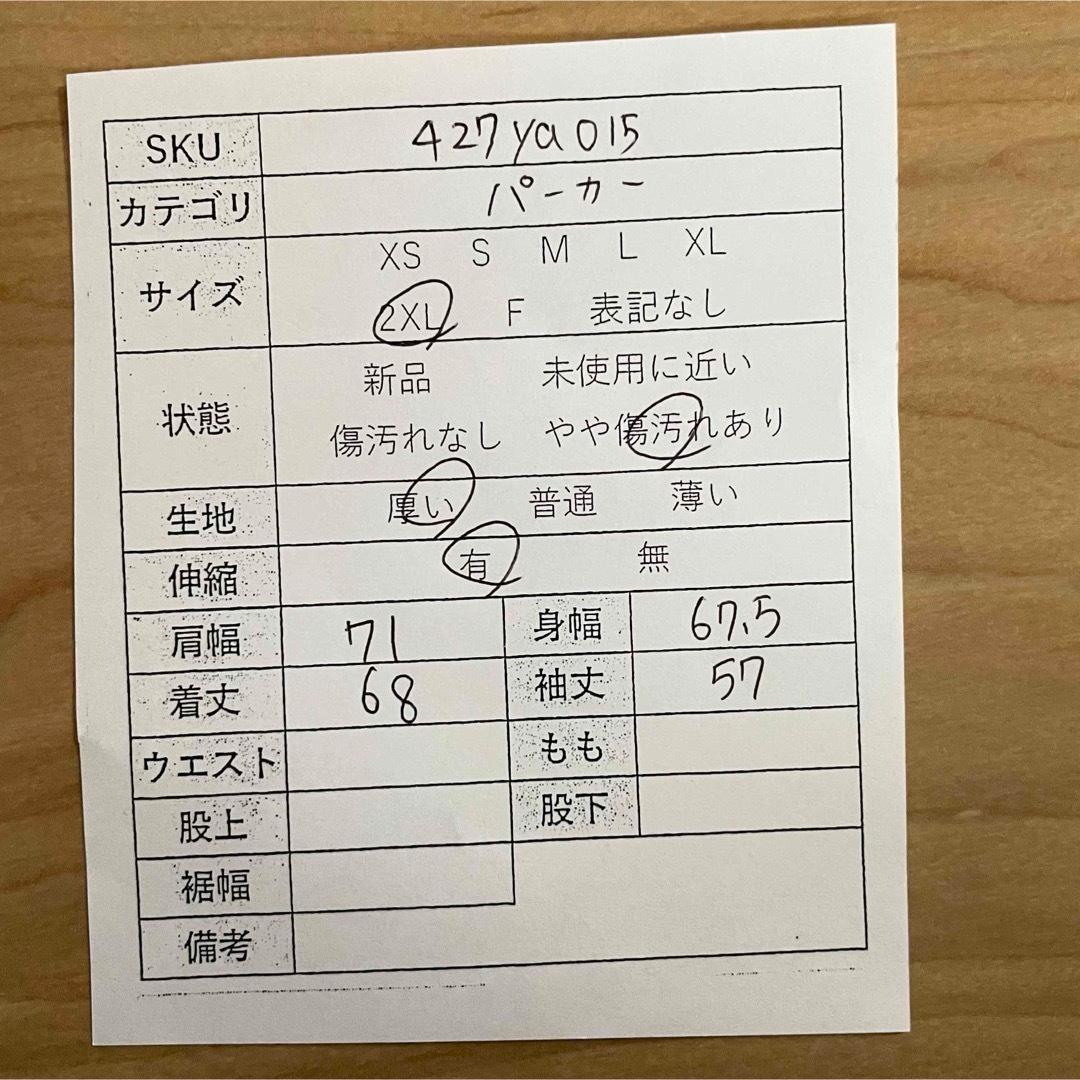 SKU 427ya015
カテゴリ パーカー
サイズ XS S M L XL
2XL F 表記なし
状態 新品 未使用に近い
傷汚れなし やや傷汚れあり
生地 厚い 普通 薄い
伸縮 有 無
肩幅 71 身幅 67.5
着丈 68 袖丈 57
ウエスト もも
股上 股下
裾幅
備考